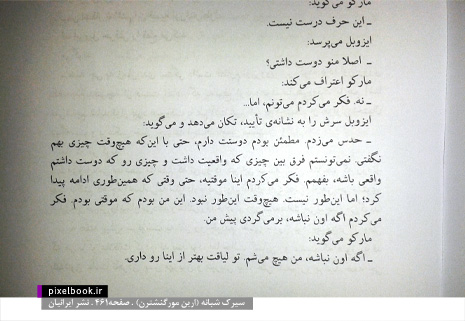 مارکو می‌گوید:
ـ این حرف درست نیست.
ایزوبل می‌پرسد:
ـ اصلا منو دوست داشتی؟
مارکو اعتراف می‌کند:
ـ نه. فکر می‌کردم می‌تونم، اما...
ایزوبل سرش را به نشانه‌ی تأیید، تکان می‌دهد و می‌گوید:
ـ حدس می‌زدم. مطمئن بودم دوستت دارم، حتی با این‌که هیچ‌وقت چیزی بهم
نگفتی. نمی‌تونستم فرق بین چیزی که واقعیت داشت و چیزی رو که دوست داشتم
واقعی باشه، بفهمم. فکر می‌کردم اینا موقتیه، حتی وقتی که همین‌طوری ادامه پیدا
کرد؛ اما این‌طور نیست. هیچ‌وقت این‌طور نبود. این من بودم که موقتی بودم. فکر
می‌کردم اگه اون نباشه، برمی‌گردی پیش من.
مارکو می‌گوید:
ـ اگه اون نباشه، من هیچ می‌شم. تو لیاقت بهتر از اینا رو داری.
pixelbook.ir
سیرک شبانه (ارین مورگنشترن) . صفحه۴۶۱ . نشر ایرانیان